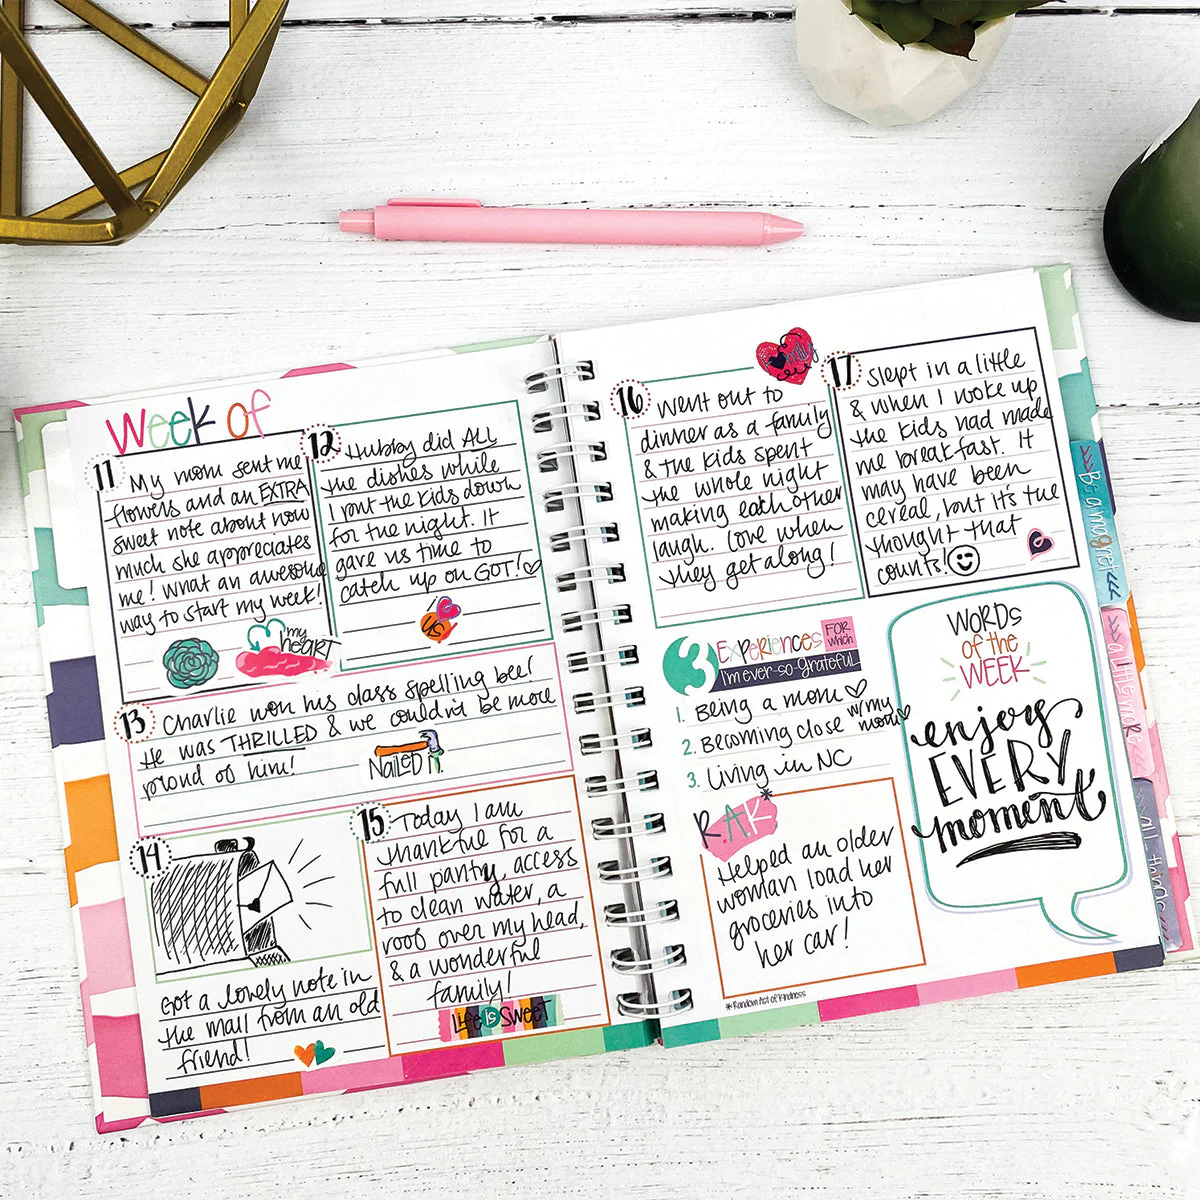 Week of
11
My mom sent me
flowers and an EXTRA
sweet note about how
much she appreciates
me! What an awesome
way to start my week!
my
heart
12
Hubby did ALL
the dishes while
I put the kids down
for the night. It
gave us time to
catch up on GOT!
us
13
Charlie won his class spelling bee!
He was THRILLED & we couldn't be more
proud of him!
NAILED IT.
14
Got a lovely note in
the mail from an old
friend!
15
Today I am
thankful for a
full pantry, access
to clean water, a
roof over my head,
& a wonderful
family!
Life is Sweet
family
16
Went out to
dinner as a family
& the kids spent
the whole night
making each other
laugh. Love when
they get along!
17
Slept in a little
& when I woke up
the kids had made
me breakfast. It
may have been
cereal, but it's the
thought that
counts!
3 EXPERIENCES FOR which
I'm ever-so-grateful
1. Being a mom
2. Becoming close w/my mom
3. Living in NC
R.A.K*
Helped an older
woman load her
groceries into
her car!
*Random Act of Kindness
WORDS
of the
WEEK
enjoy
EVERY
moment